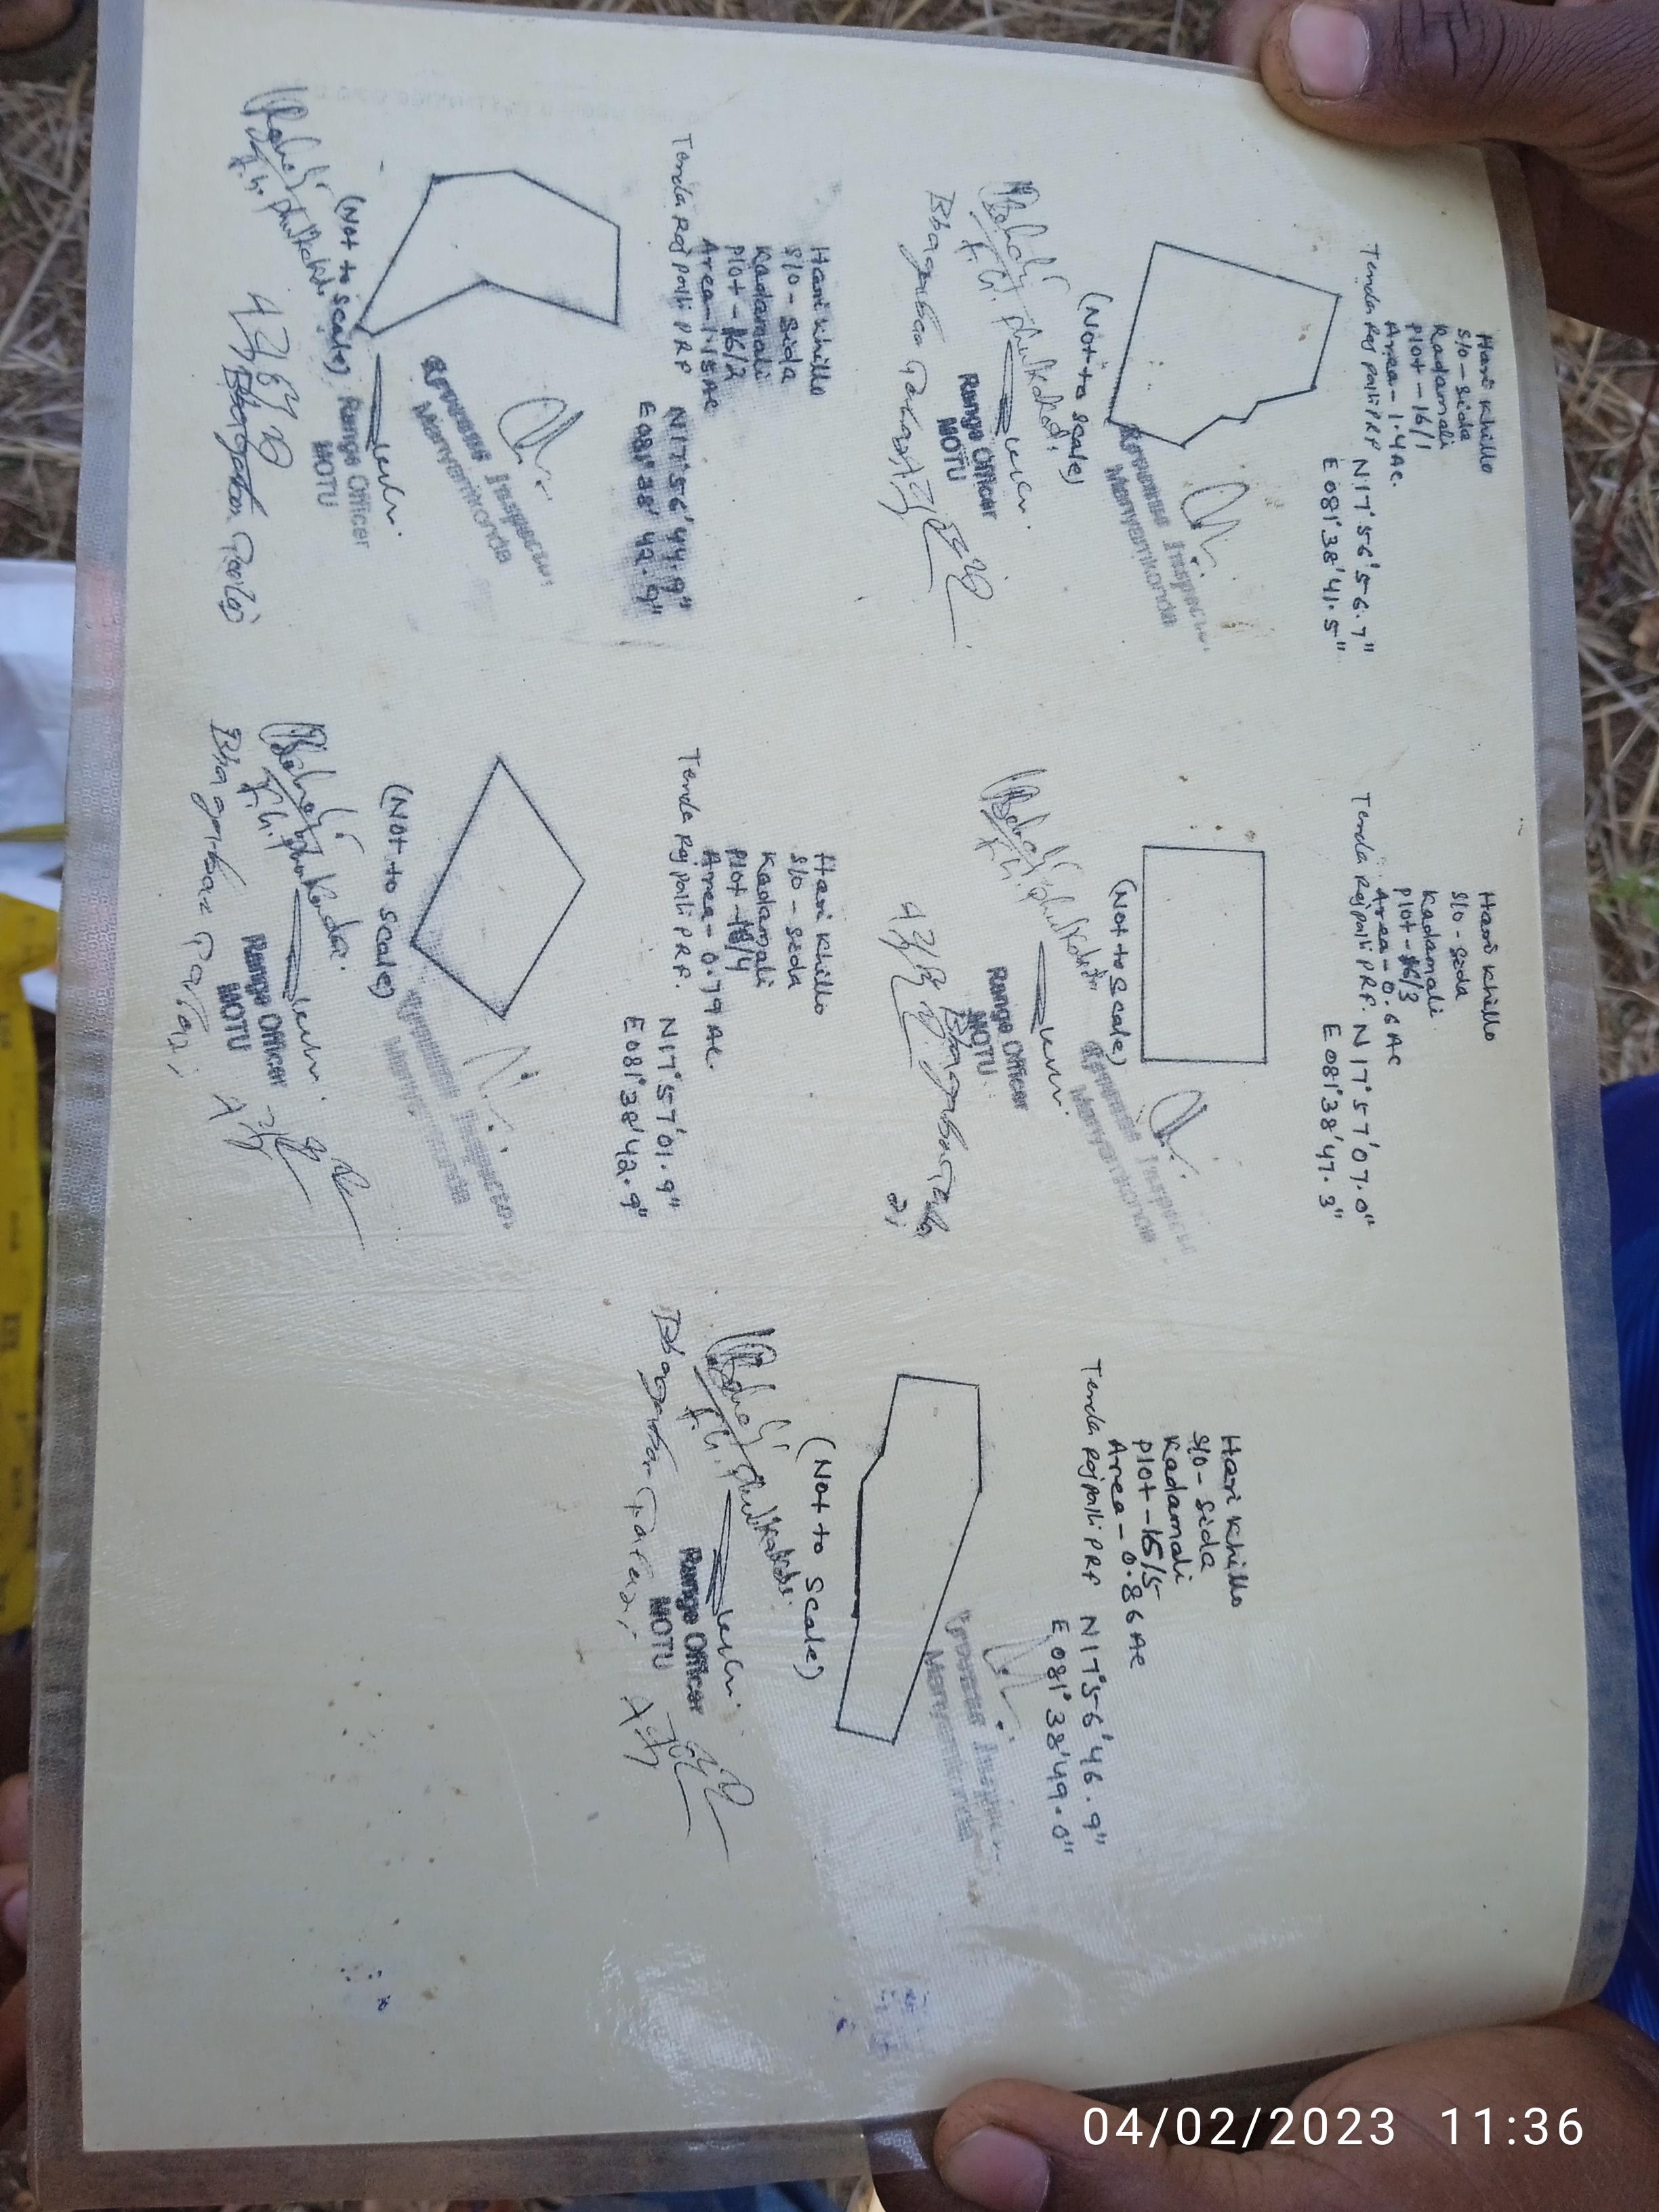 Hari Khillo
S/o - Sida
Kadamali
Plot - 16/1
Area - 1.4 Ac.
Tenda Rajpalli PRF
N 17°56'56.7"
E 081°38'41.5"
(Not to scale)
Range Officer
MOTU
Revenue Inspector
Manyamkonda
Hari Khillo
S/o - Sida
Kadamali
Plot - 16/3
Area - 0.6 Ac
Tenda Rajpalli PRF.
N 17°57'07.0"
E 081°38'47.3"
(Not to scale)
Range Officer
MOTU
Revenue Inspector
Manyamkonda
Hari Khillo
S/o - Sida
Kadamali
Plot - 16/5
Area - 0.86 Ac
Tenda Rajpalli PRF
N 17°56'46.9"
E 081°38'49.0"
(Not to scale)
Range Officer
MOTU
Revenue Inspector
Manyamkonda
Hari Khillo
S/o - Sida
Kadamali
Plot - 16/2
Area - 1.15 Ac
Tenda Rajpalli PRF
N 17°56'44.9"
E 081°38'42.9"
(Not to scale)
Range Officer
MOTU
Revenue Inspector
Manyamkonda
Hari Khillo
S/o - Sida
Kadamali
Plot - 16/4
Area - 0.79 Ac
Tenda Rajpalli PRF.
N 17°57'01.9"
E 081°38'42.9"
(Not to scale)
Range Officer
MOTU
Revenue Inspector
Manyamkonda
04/02/2023 11:36